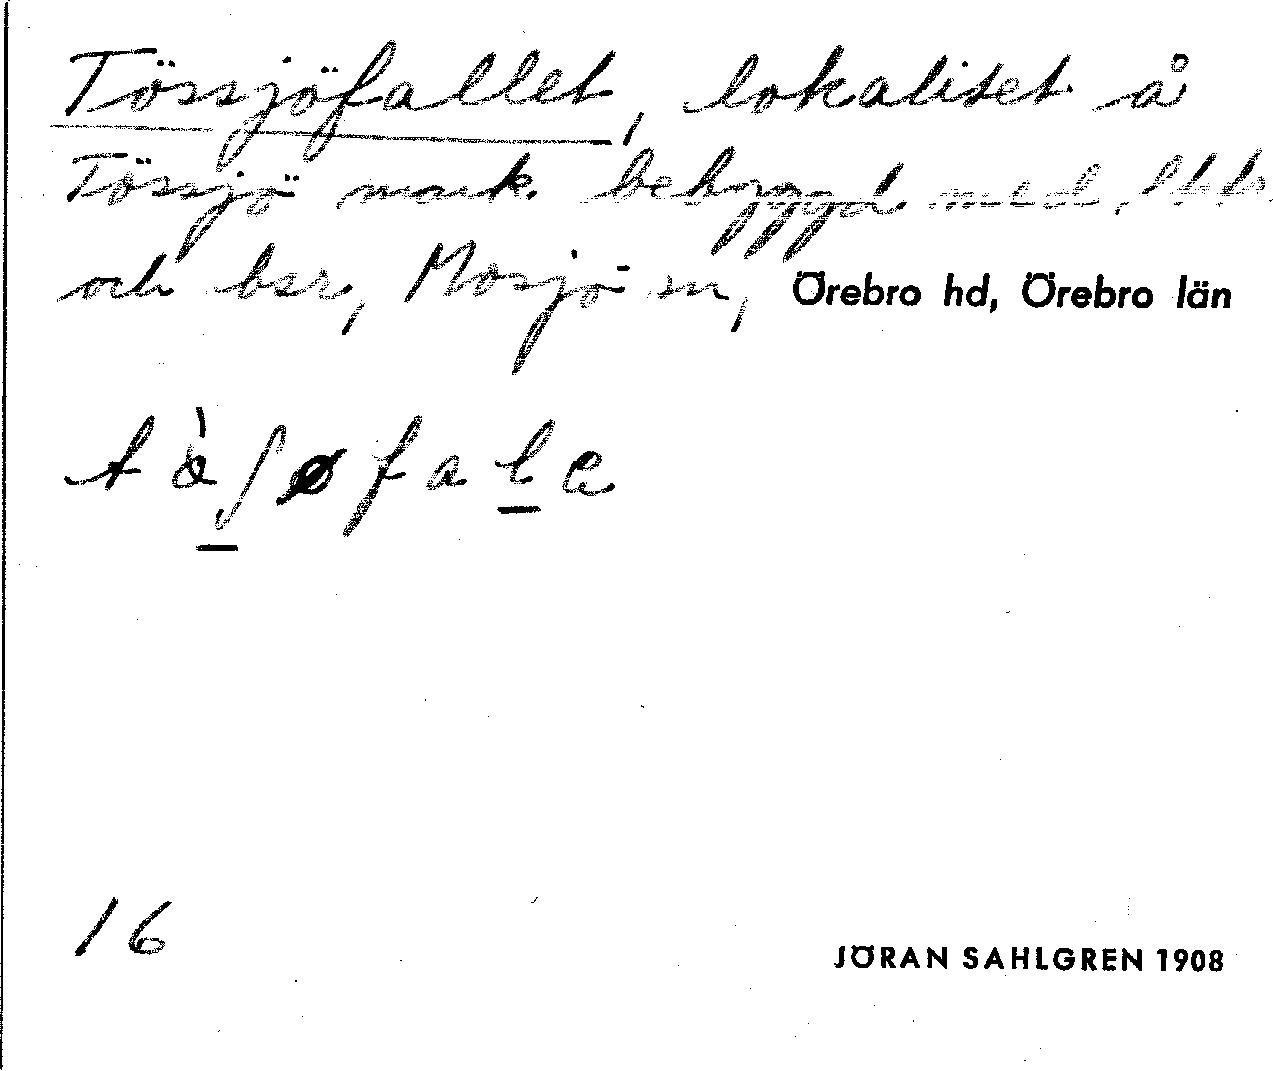 Tössjöfallet, lokalitet å
Tössjö mark. bebyggd med
och bsr, Mosjö sn, Örebro hd, Örebro län
tòʃøfale
16
JÖRAN SAHLGREN 1908